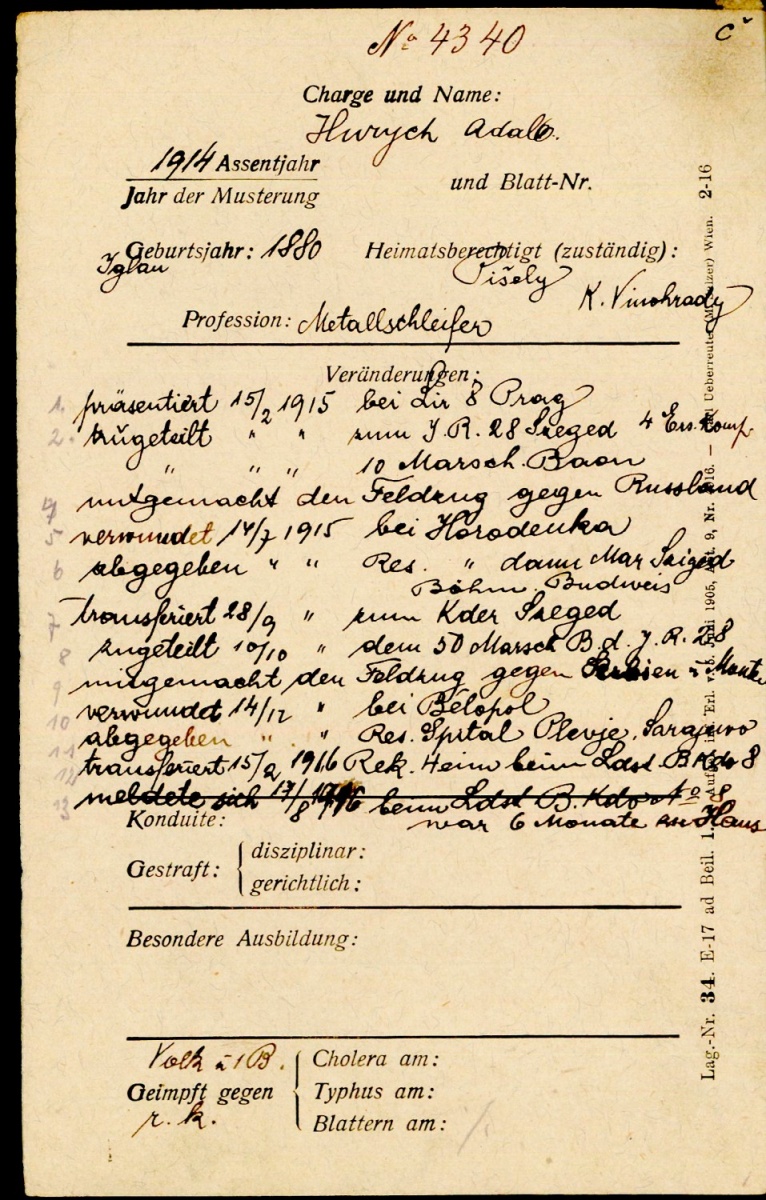 č
No 4340
Charge und Name:
Hwrych Adalb.
1914 Assentjahr
Jahr der Musterung
und Blatt-Nr.
Geburtsjahr: 1880 Heimatsberechtigt (zuständig):
Iglau
Pišely
K. Vinohrady
Profession: Metallschleifer
Veränderungen:
1. präsentiert 15/2 1915 bei Lir 8 Prag
2. zugeteilt " " zum J. R. 28 Szeged 4 Ers. Komp.
" " " 10 Marsch. Baon
4 mitgemacht den Feldzug gegen Russland
5 verwundet 14/7 1915 bei Horodenka
6 abgegeben " " Res. " dann Mar Sziged
Böhm. Budweis
7 transferiert 28/9 " zum Kder Szeged
8 zugeteilt 10/10 " dem 50 Marsch B. d. J. R. 28
9 mitgemacht den Feldzug gegen Serbien u Monte
10 verwundet 14/12 " bei Belopol
11 abgegeben " " Res. Spital Plevje, Sarajewo
12 transferiert 15/2 1916 Rek. Heim beim Ldst. B Kdo 8
13 meldete sich 17/8 1916 beim Ldst B. Kdo No 8
Konduite: war 6 Monate zu Haus
Gestraft: disziplinar:
gerichtlich:
Besondere Ausbildung:
Volk u 1 B.
Cholera am:
Geimpft gegen Typhus am:
r. k.
Blattern am:
Lag.-Nr. 34. E-17 ad Beil. 1. Wien. 2-16